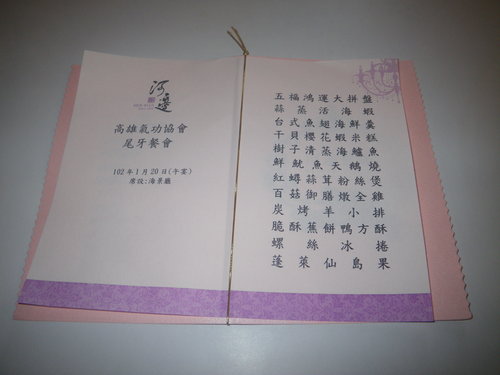 河邊
高雄氣功協會
尾牙餐會
102年1月20日(午宴)
席設:海景廳
五福鴻運大拼盤
蒜蒸活海蝦
台式魚翅海鮮羹
干貝櫻花蝦米糕
樹子清蒸海鱸魚
鮮魷魚天鵝燒
紅蟳蒜茸粉絲煲
百菇御膳燉全雞
炭烤羊小排
脆酥蕉餅鴨方酥
螺絲冰捲
蓬萊仙島果